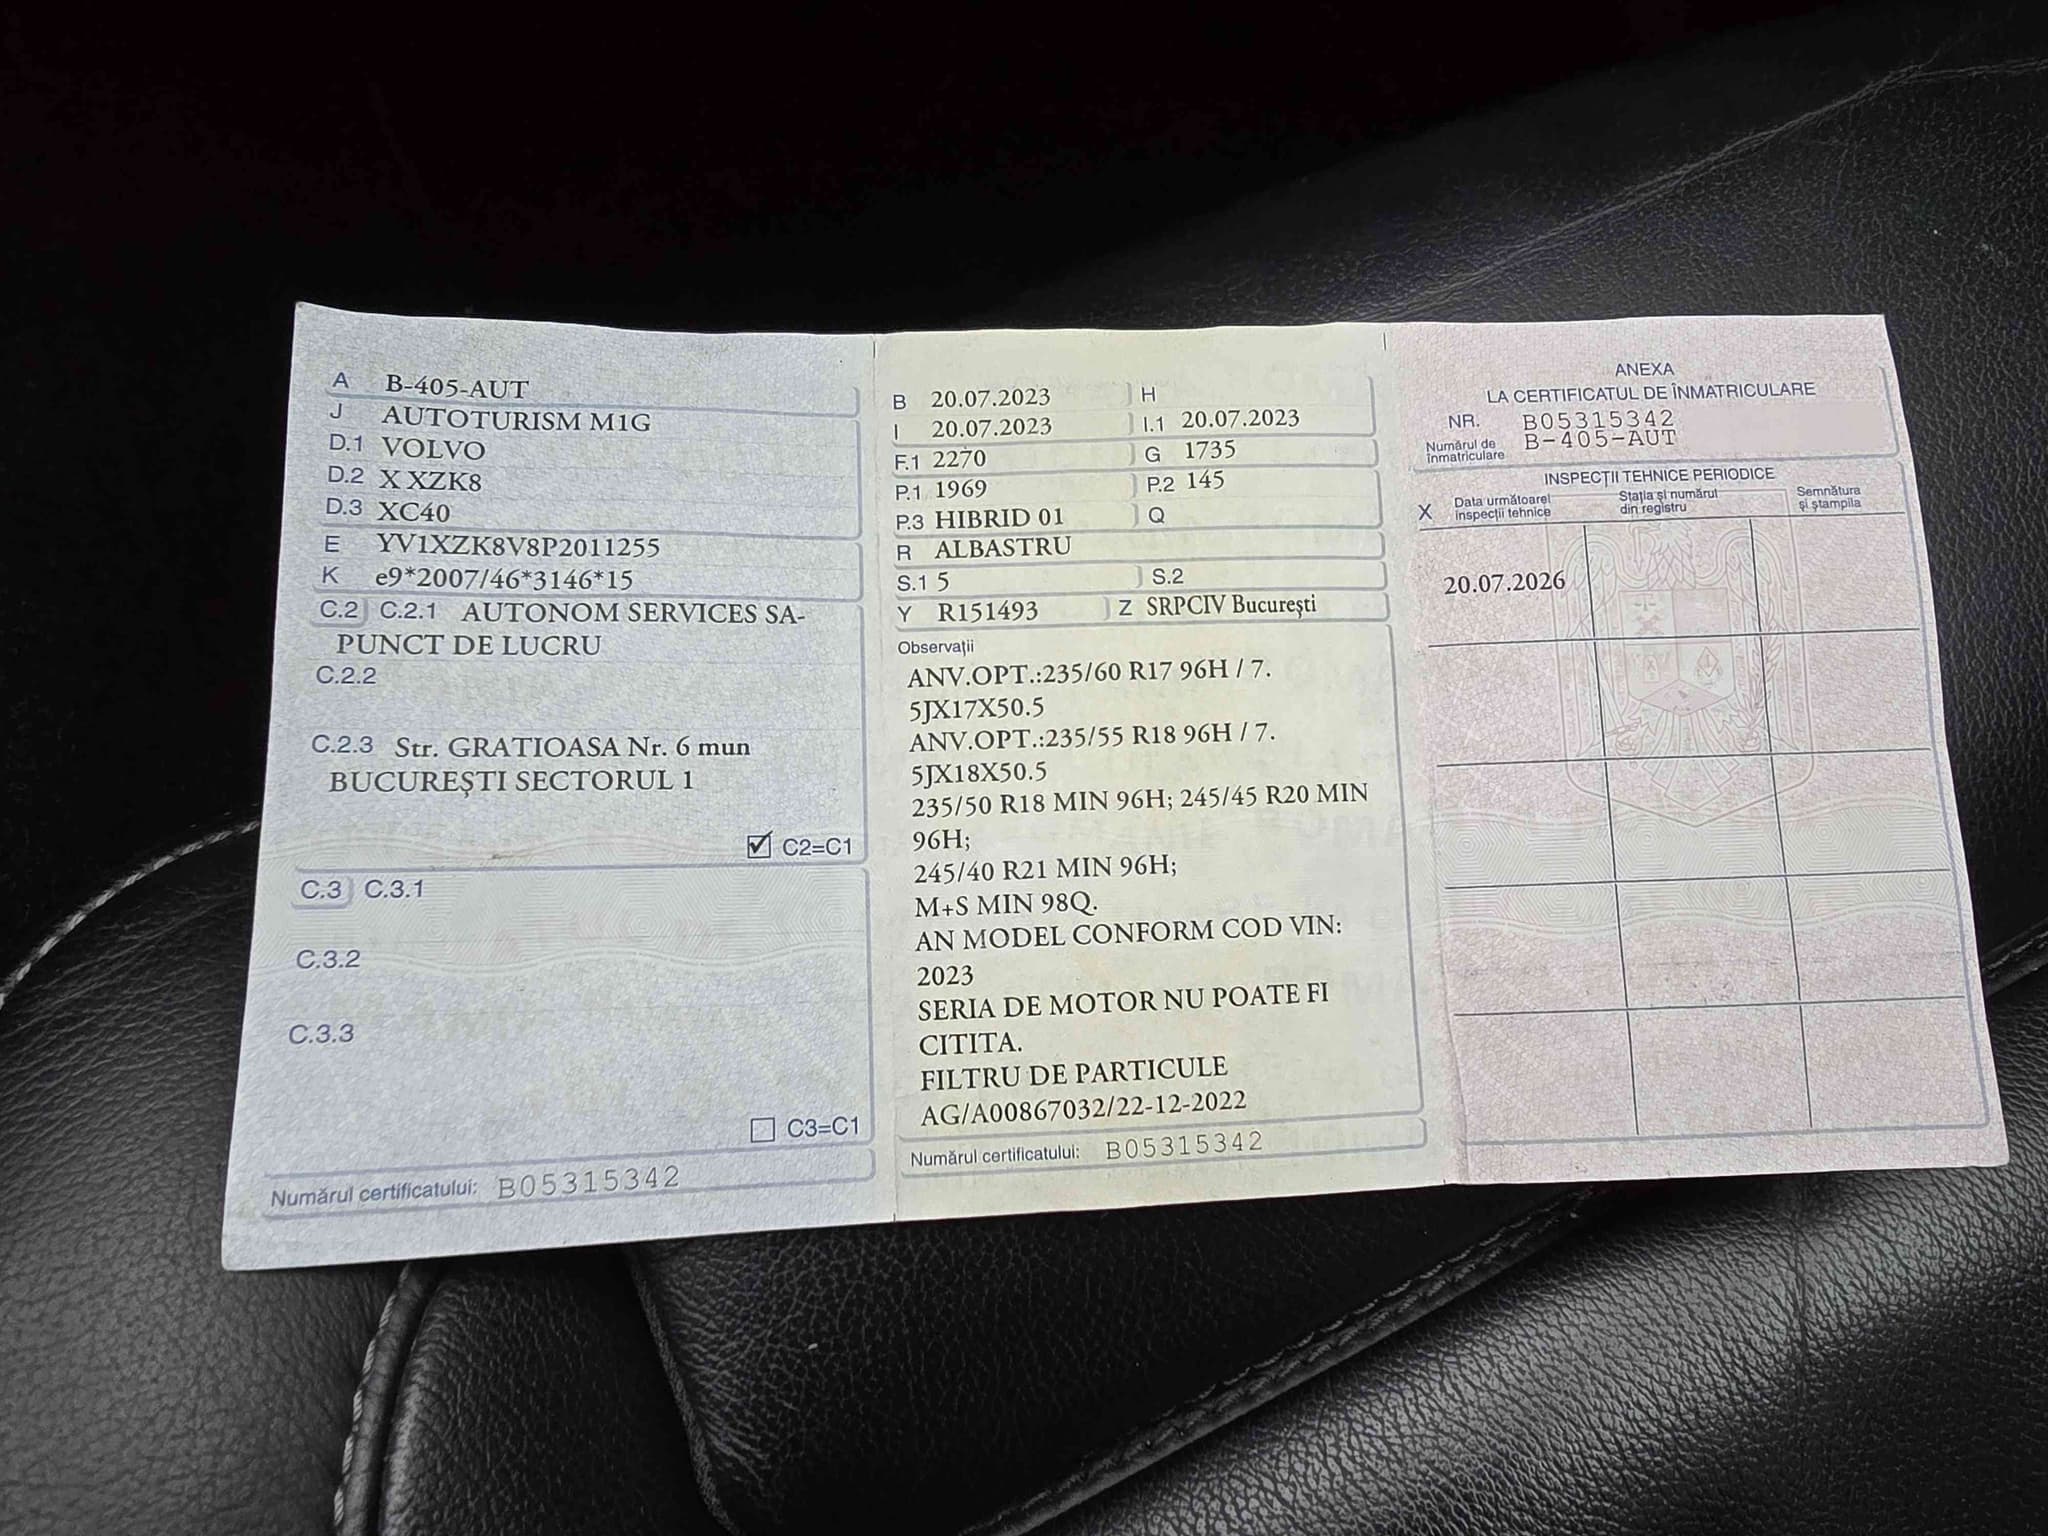 A B-405-AUT
J AUTOTURISM M1G
D.1 VOLVO
D.2 X XZK8
D.3 XC40
E YV1XZK8V8P2011255
K e9*2007/46*3146*15
C.2 C.2.1 AUTONOM SERVICES SA-
PUNCT DE LUCRU
C.2.2
C.2.3 Str. GRATIOASA Nr. 6 mun
BUCUREȘTI SECTORUL 1
C2=C1
C.3 C.3.1
C.3.2
C.3.3
C3=C1
Numărul certificatului: B05315342
B 20.07.2023 H
I 20.07.2023 I.1 20.07.2023
F.1 2270 G 1735
P.1 1969 P.2 145
P.3 HIBRID 01 Q
R ALBASTRU
S.1 5 S.2
Y R151493 Z SRPCIV București
Observații
ANV.OPT.:235/60 R17 96H / 7.
5JX17X50.5
ANV.OPT.:235/55 R18 96H / 7.
5JX18X50.5
235/50 R18 MIN 96H; 245/45 R20 MIN
96H;
245/40 R21 MIN 96H;
M+S MIN 98Q.
AN MODEL CONFORM COD VIN:
2023
SERIA DE MOTOR NU POATE FI
CITITA.
FILTRU DE PARTICULE
AG/A00867032/22-12-2022
Numărul certificatului: B05315342
ANEXA
LA CERTIFICATUL DE ÎNMATRICULARE
NR. B05315342
Numărul de
înmatriculare B-405-AUT
INSPECȚII TEHNICE PERIODICE
X Data următoarei
inspecții tehnice
Stația și numărul
din registru
Semnătura
și ștampila
20.07.2026